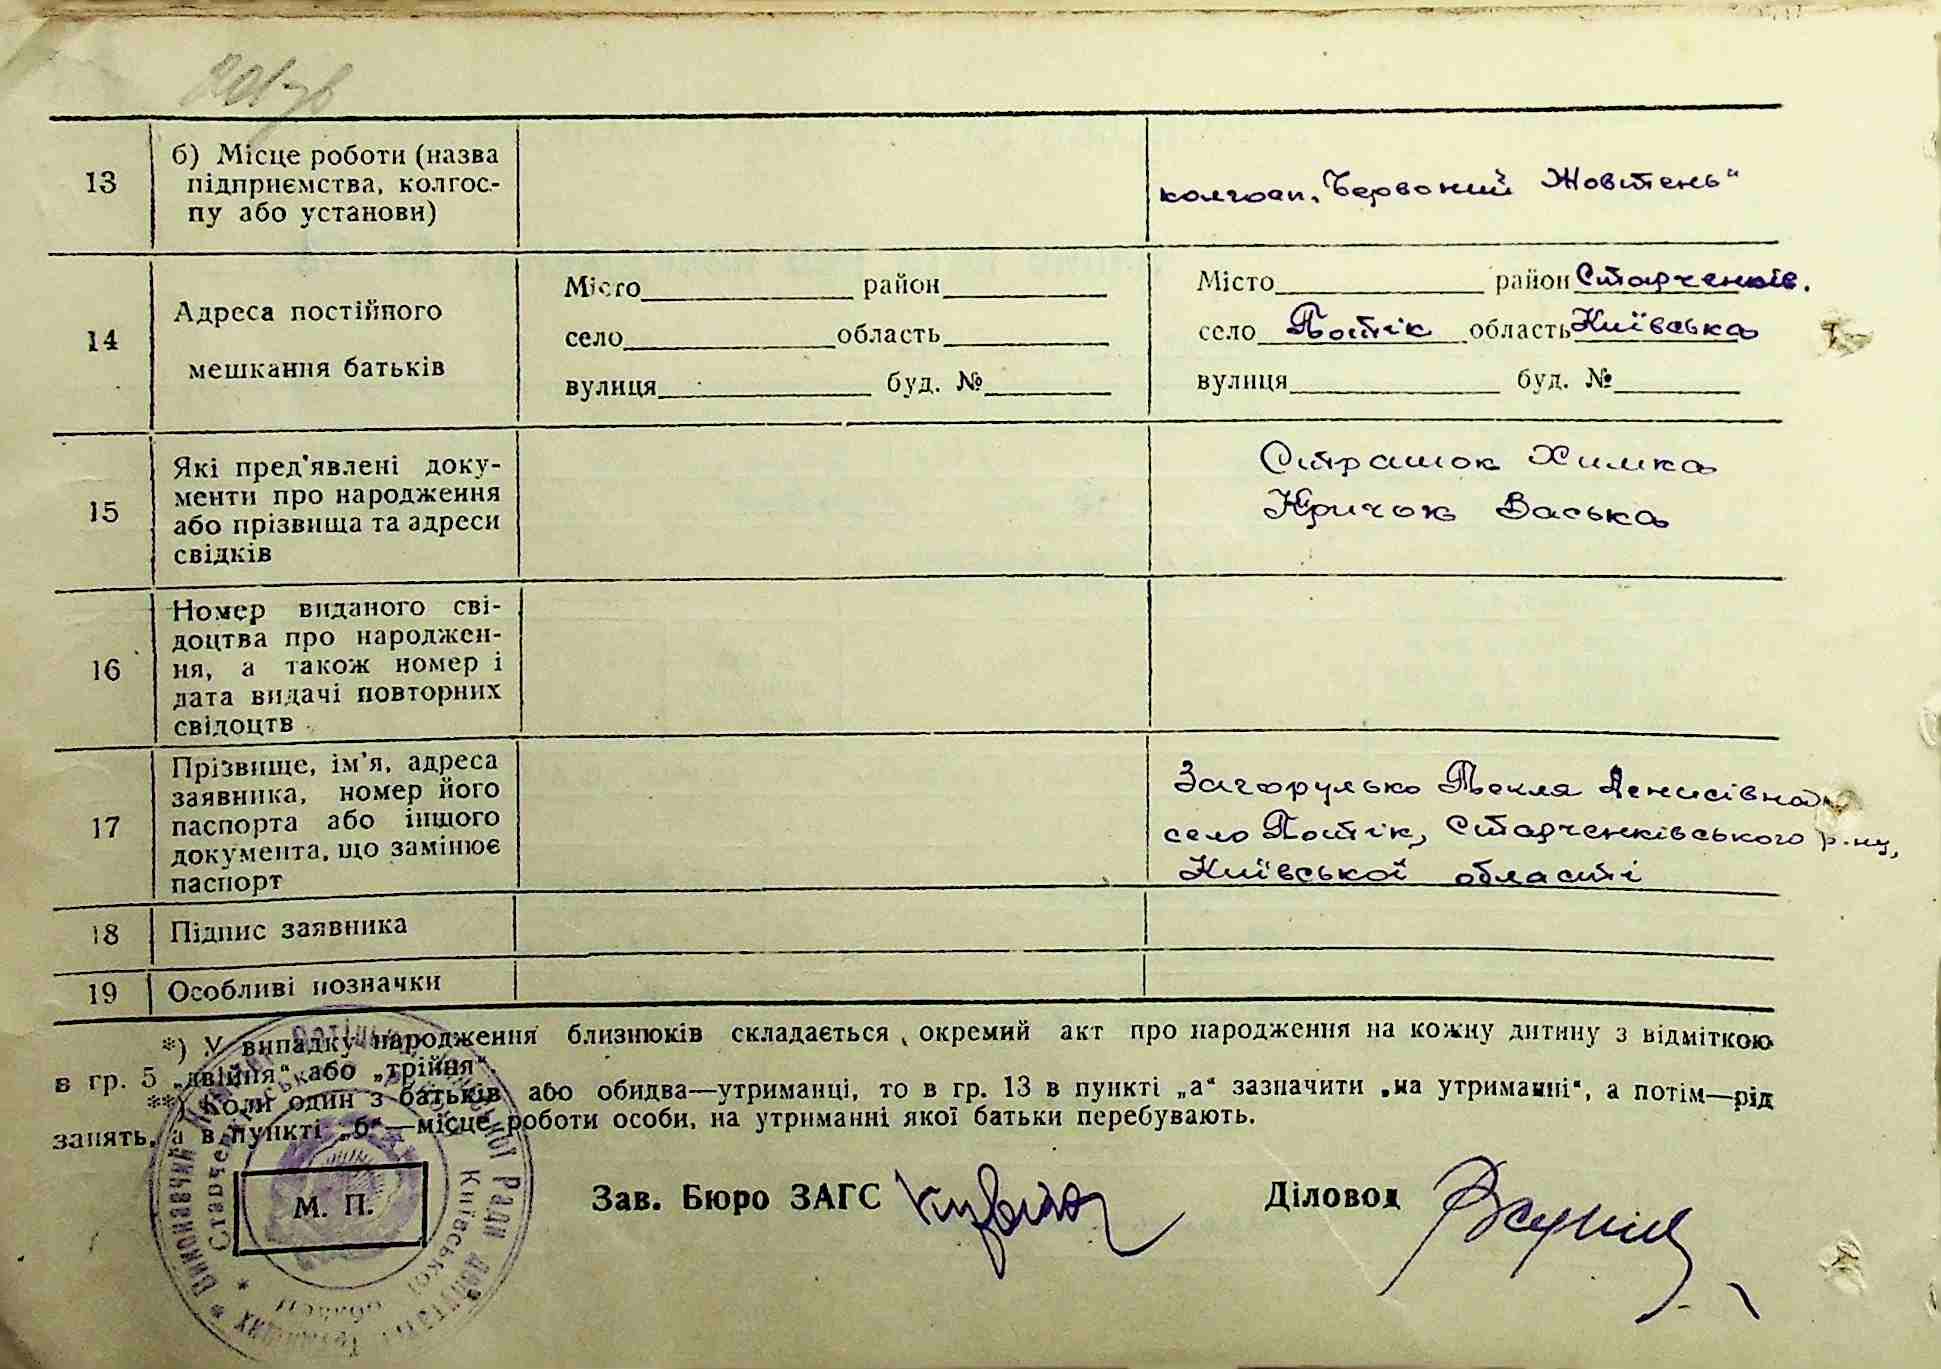 13
б) Місце роботи (назва
підприємства, колгос-
пу або установи)
колгосп „Червоний Жовтень"
14
Адреса постійного
мешкання батьків
Місто район
село область
вулиця буд. №
Місто район Старченків.
село Потік область Київська
вулиця буд. №
15
Які пред'явлені доку-
менти про народження
або прізвища та адреси
свідків
Страшок Химка
Кричок Васька
16
Номер виданого сві-
доцтва про народжен-
ня, а також номер і
дата видачі повторних
свідоцтв
17
Прізвище, ім'я, адреса
заявника, номер його
паспорта або іншого
документа, що замінює
паспорт
Загорулько Текля Денисівна
село Потік, Старченківського р-ну,
Київської області
18
Підпис заявника
19
Особливі позначки
*) У випадку народження близнюків складається окремий акт про народження на кожну дитину з відміткою
в гр. 5 „двійня" або „трійня".
**) Коли один з батьків або обидва—утриманці, то в гр. 13 в пункті „а" зазначити „на утриманні", а потім—рід
занять, а в пункті „б"—місце роботи особи, на утриманні якої батьки перебувають.
М. П.
Зав. Бюро ЗАГС
Діловод
Виконавчий Ради депутатів трудящих
Київської області